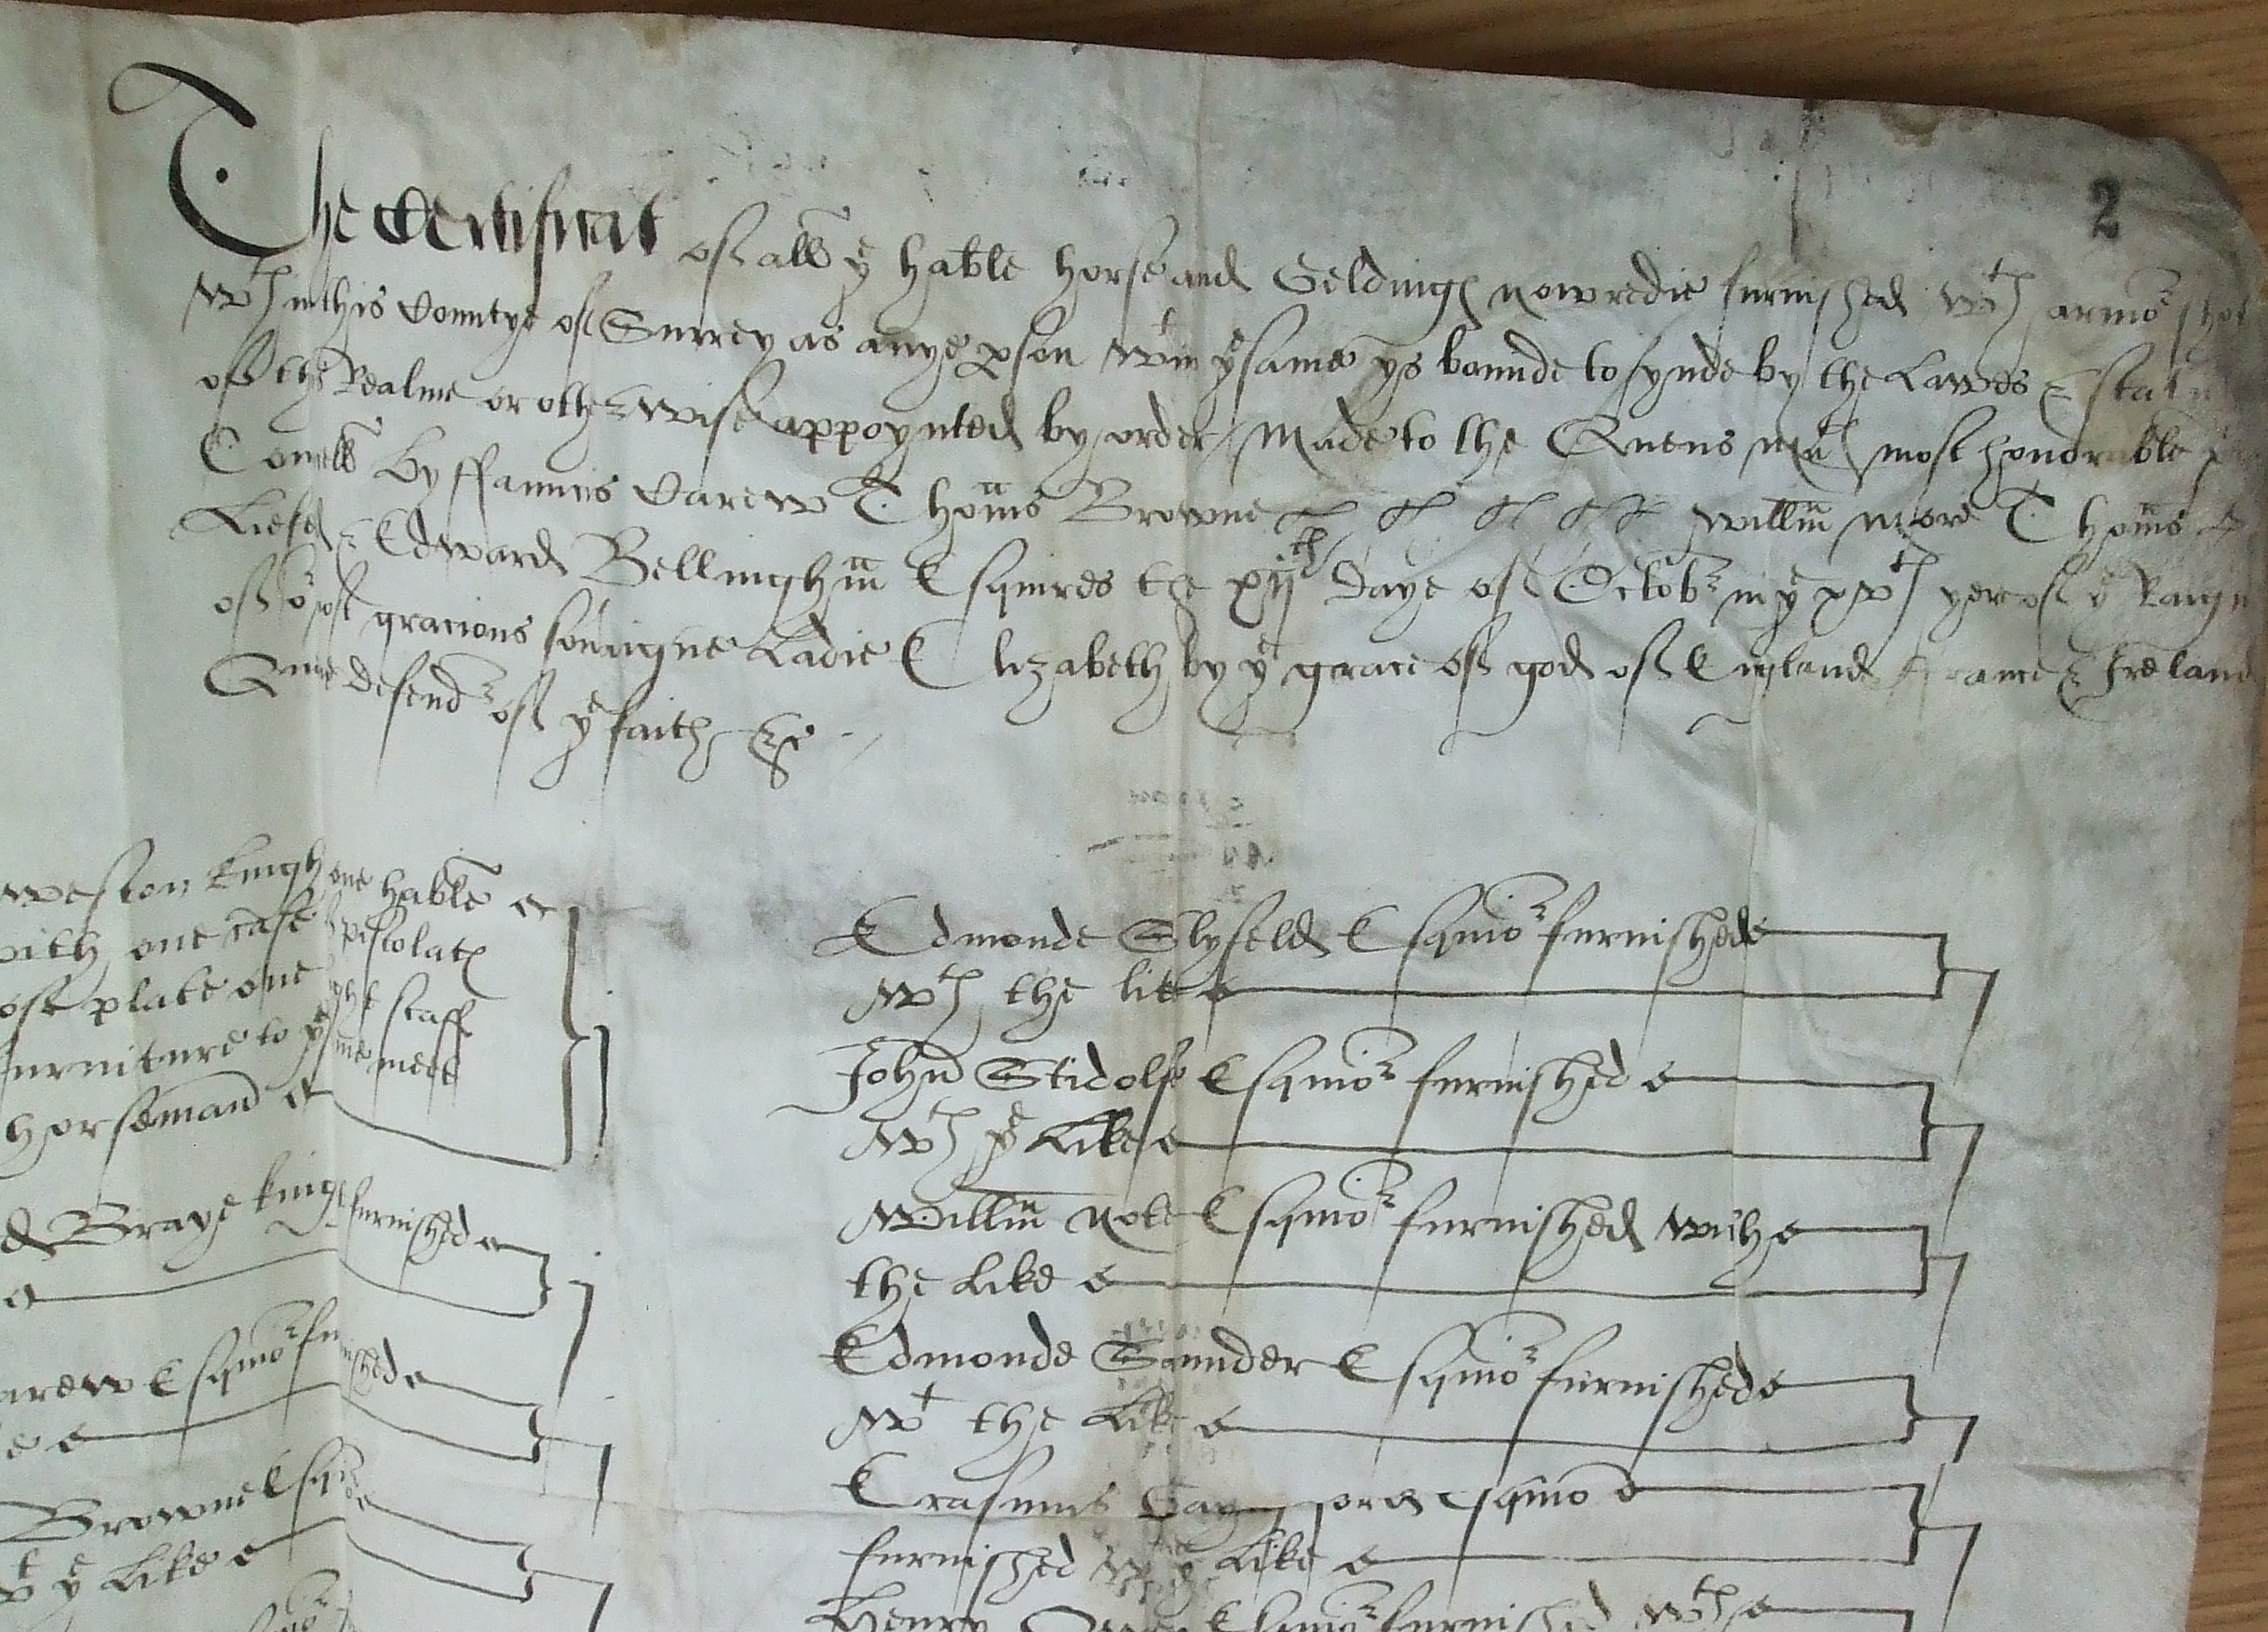 2
The Certificat off all yͤ hable horse and Geldinges now redie furnished wᵗʰ armoʳ shot
wᵗʰ in this Countye off Surrey as anye pson wᵗin yͤ same ys bounde to fynde by the Lawes & statu
off the Realme or otherwise appoynted by order Made to the Quens Maᵗⁱᵉˢ most honorable
Counsell By ffraunces Carew Thoms Browne Willm More Thoms
Liefeld & Edward Bellinghm Esquires the xijᵗʰ daye off Octobʳ in yͤ xxᵗʰ yere off yͤ Raign
off oʳ most gracious soūaigne Ladie Elizabeth by yͤ grace off god off England ffrance & Ireland
Quene defendʳ off yͤ faith &c
Weston knigh one hable
with one case pistolates
off plate one light staff
furniture to yͤ same meete
horseman
d Braye knight furnished
arew Esquioʳ furnished
Browne Esquioʳ
wᵗ yͤ Like
Edmonde Slyfeld Esquioʳ furnished
wᵗʰ the like
John Stidolfe Esquioʳ furnished
wᵗʰ yͤ Like
Willm Note Esquioʳ furnished with
the Like
Edmonde Saunder Esquioʳ furnished
wᵗ the Like
Erasmus Gaynsford esquio
furnished wᵗ yͤ Like
Henry Esquioʳ furnished wᵗʰ